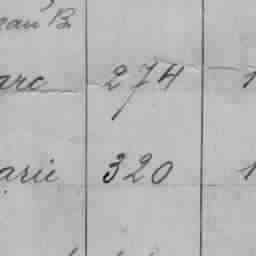 ean B.
arc 274 1
arie 320 1